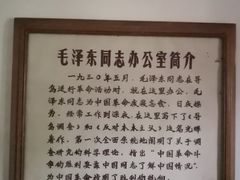 毛泽东同志办公室简介
一九三〇年五月，毛泽东同志在寻
乌进行革命活动时，就在这里办公。毛
泽东同志为中国革命废寝忘食，日夜操
劳，经常工作到深夜，在这里写下了《寻
乌调查》和《反对本本主义》这篇光辉
著作，第一次全面系统地阐明了关于调
查研究的科学理论，指出“中国革命斗
争的胜利要靠中国同志了解中国情况”，